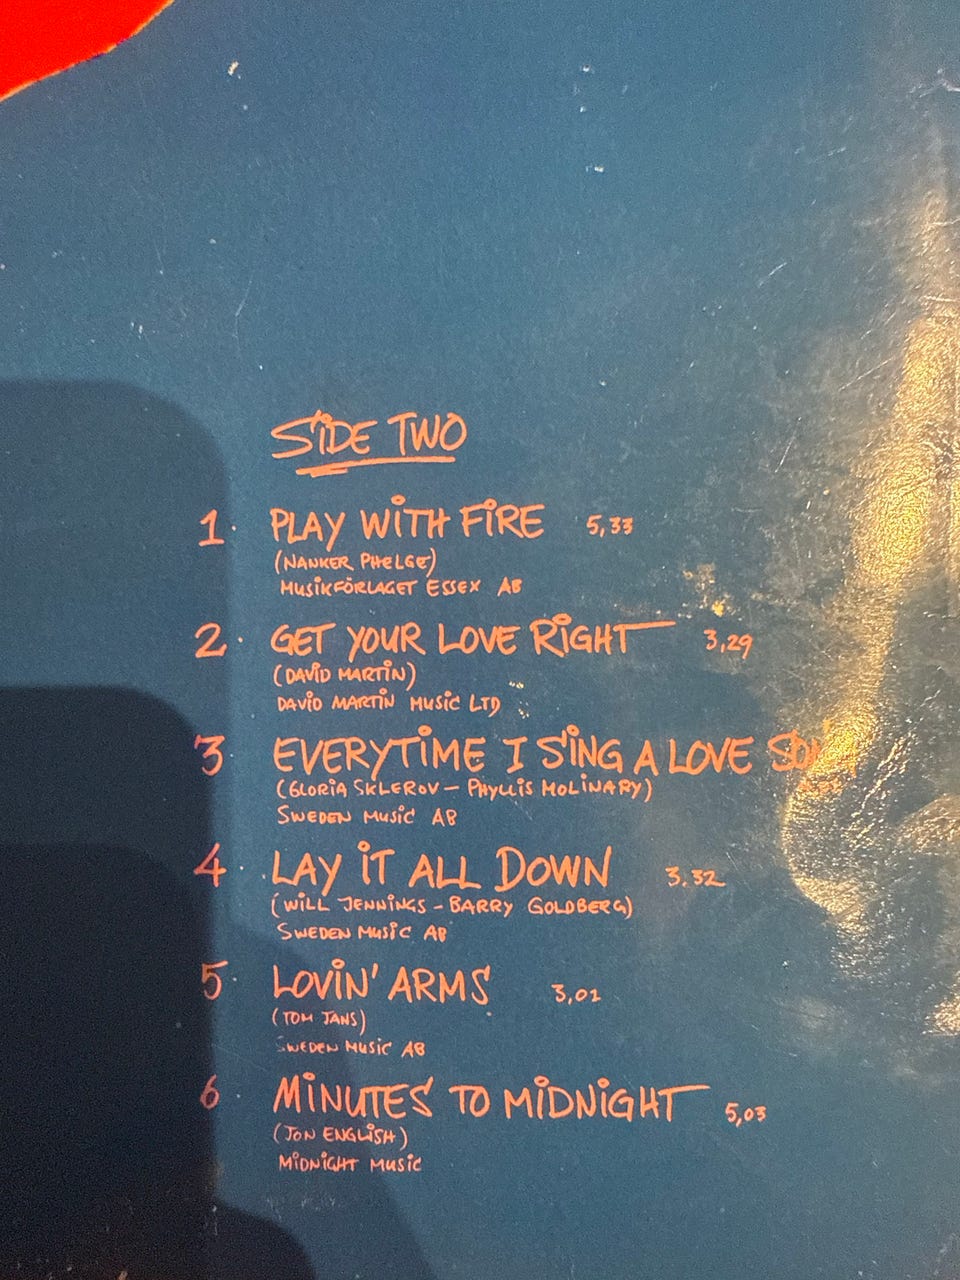 SIDE TWO
1. PLAY WITH FIRE 5,33
(NANKER PHELGE)
MUSIKFÖRLAGET ESSEX AB
2. GET YOUR LOVE RIGHT 3,29
(DAVID MARTIN)
DAVID MARTIN MUSIC LTD
3. EVERYTIME I SING A LOVE
(GLORIA SKLEROV - PHYLLIS MOLINARY)
SWEDEN MUSIC AB
4. LAY IT ALL DOWN 3.32
(WILL JENNINGS - BARRY GOLDBERG)
SWEDEN MUSIC AB
5. LOVIN' ARMS 3,01
(TOM JANS)
SWEDEN MUSIC AB
6 MINUTES TO MIDNIGHT 5,03
(JON ENGLISH)
MIDNIGHT MUSIC